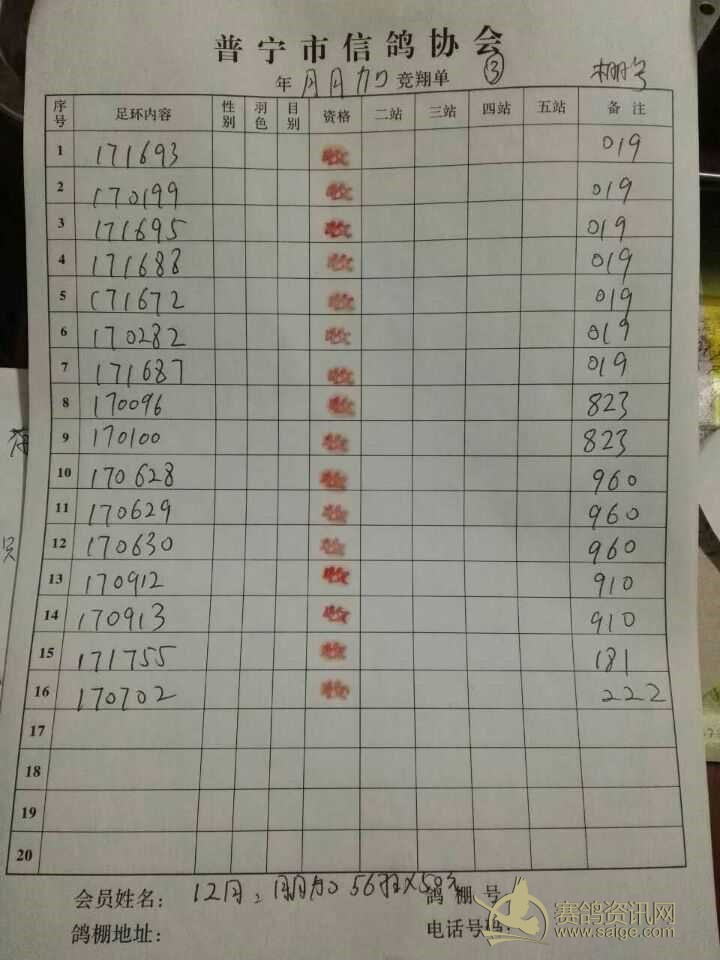 普宁市信鸽协会
年 月月加 竞翔单 ③ 棚号
序号 足环内容 性别 羽色 目别 资格 二站 三站 四站 五站 备注
1 171693 收 019
2 170199 收 019
3 171695 收 019
4 171688 收 019
5 171672 收 019
6 170282 收 019
7 171687 收 019
8 170096 收 823
9 170100 收 823
10 170628 收 960
11 170629 收 960
12 170630 收 960
13 170912 收 910
14 170913 收 910
15 171755 收 181
16 170702 收 222
17
18
19
20
会员姓名： 12月 加 鸽棚号
鸽棚地址： 电话号码：
赛鸽资讯网
www.saige.com